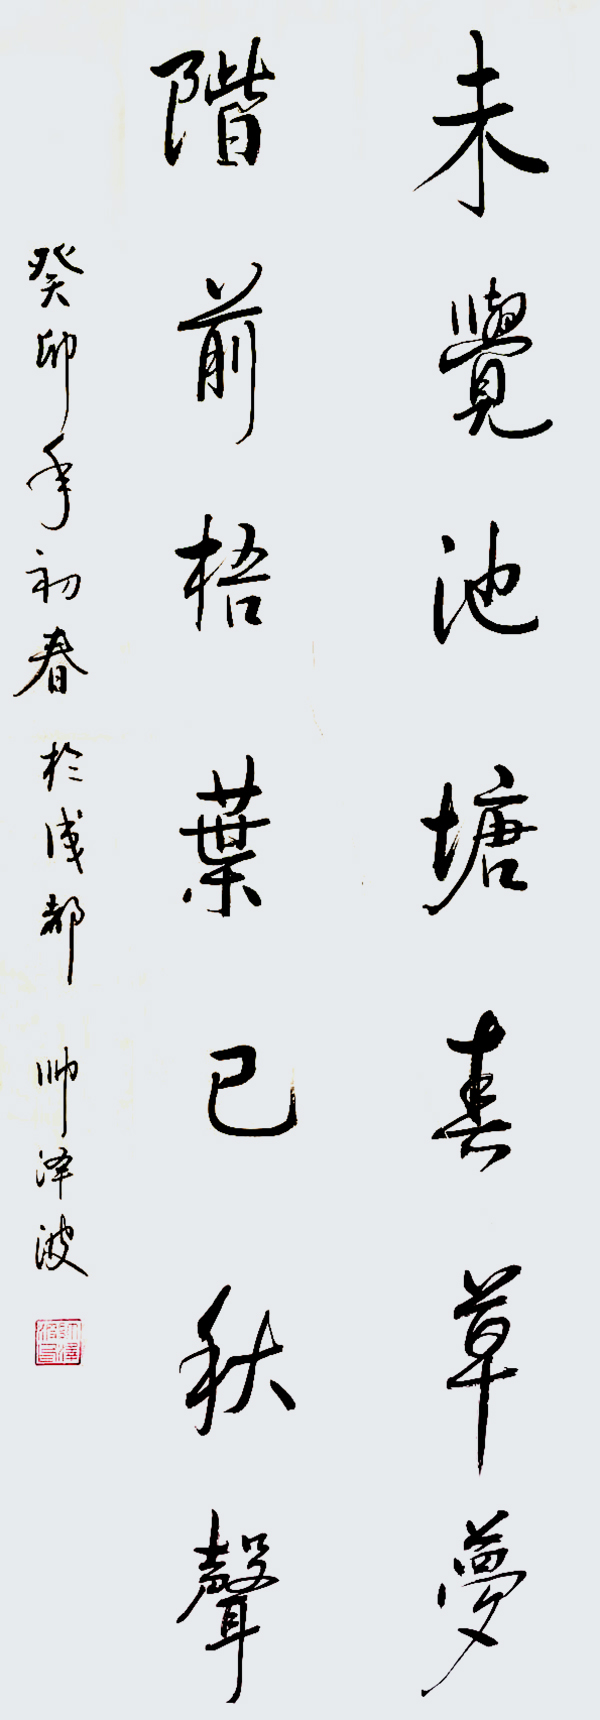 未覺池塘春草夢
階前梧葉已秋聲
癸卯年初春於成都 帅泽波